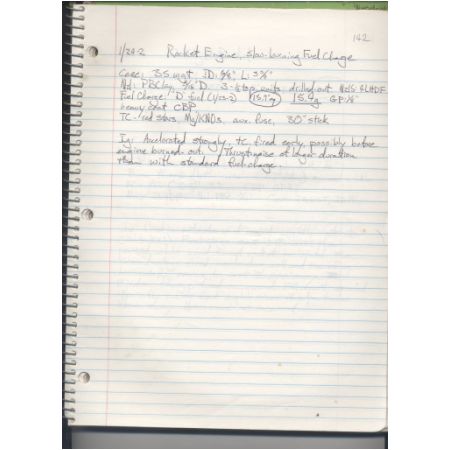 142
1/24-2 Rocket Engine, slow-burning Fuel Charge
Case: 35 wgt, ID: 5/8" L: 3 7/8"
Nzl: PBClay, 5/16" D 3-step, drilled out
Fuel Charge: "D" fuel (1/23-2) 15.9g GP: 1/2"
heavy coat CBP
TC - red stars, Mg/KNO3, aux. fuse, 30" stick
Ig: Accelerated strongly, tc fired early, possibly before
engine burned out. Thrust noise of longer duration
than with standard fuel charge.